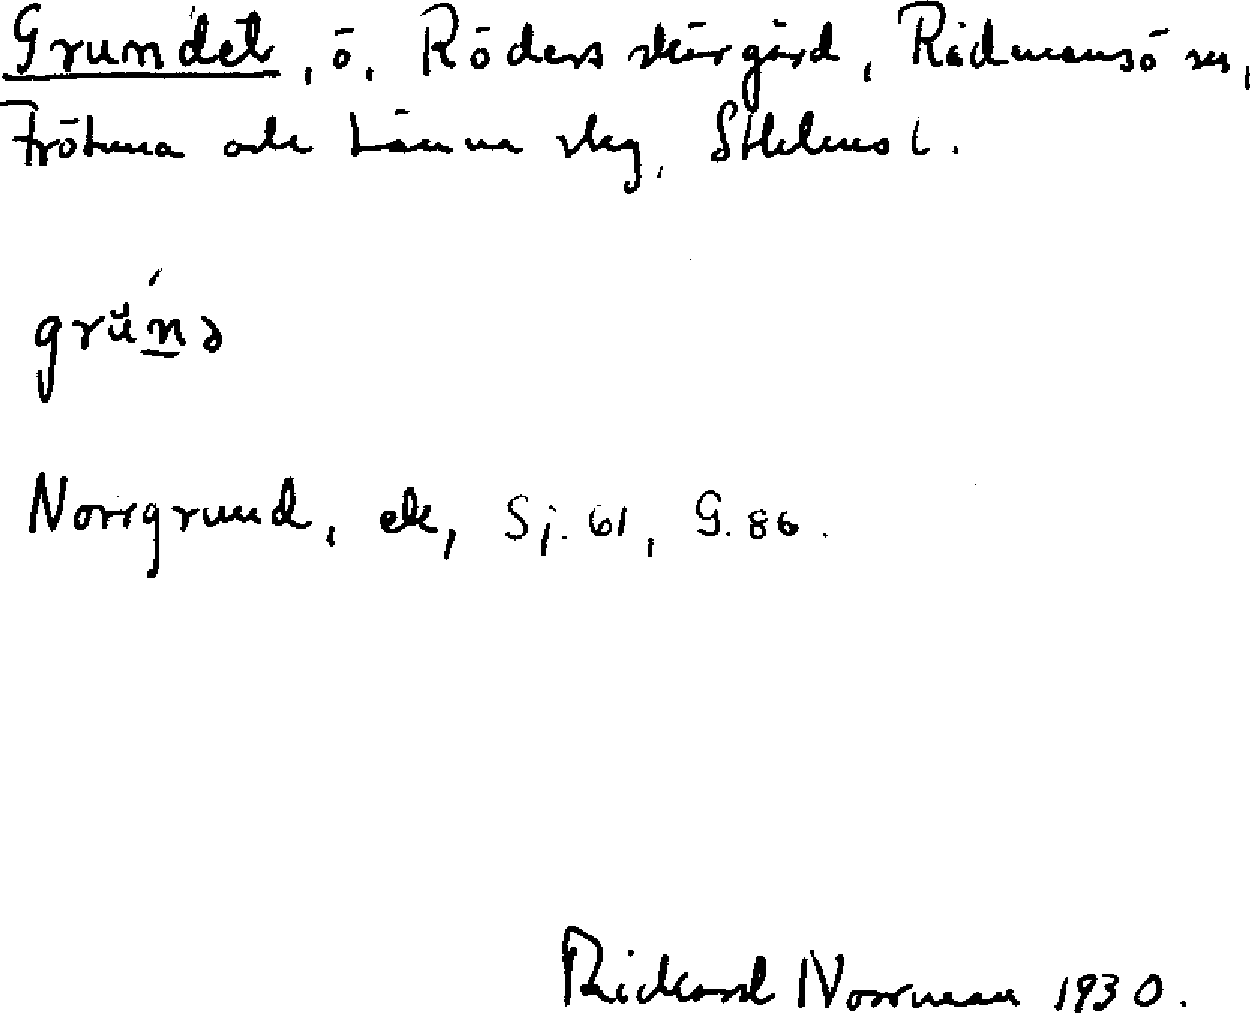 Grundet, ö, Röders skärgård, Rådmansö sn,
Frötuna och Länna skg, Sthlms l.
grŭn̲ə
Norrgrund, ek, Sj. 61, G. 86.
Rickard Norrman 1930.